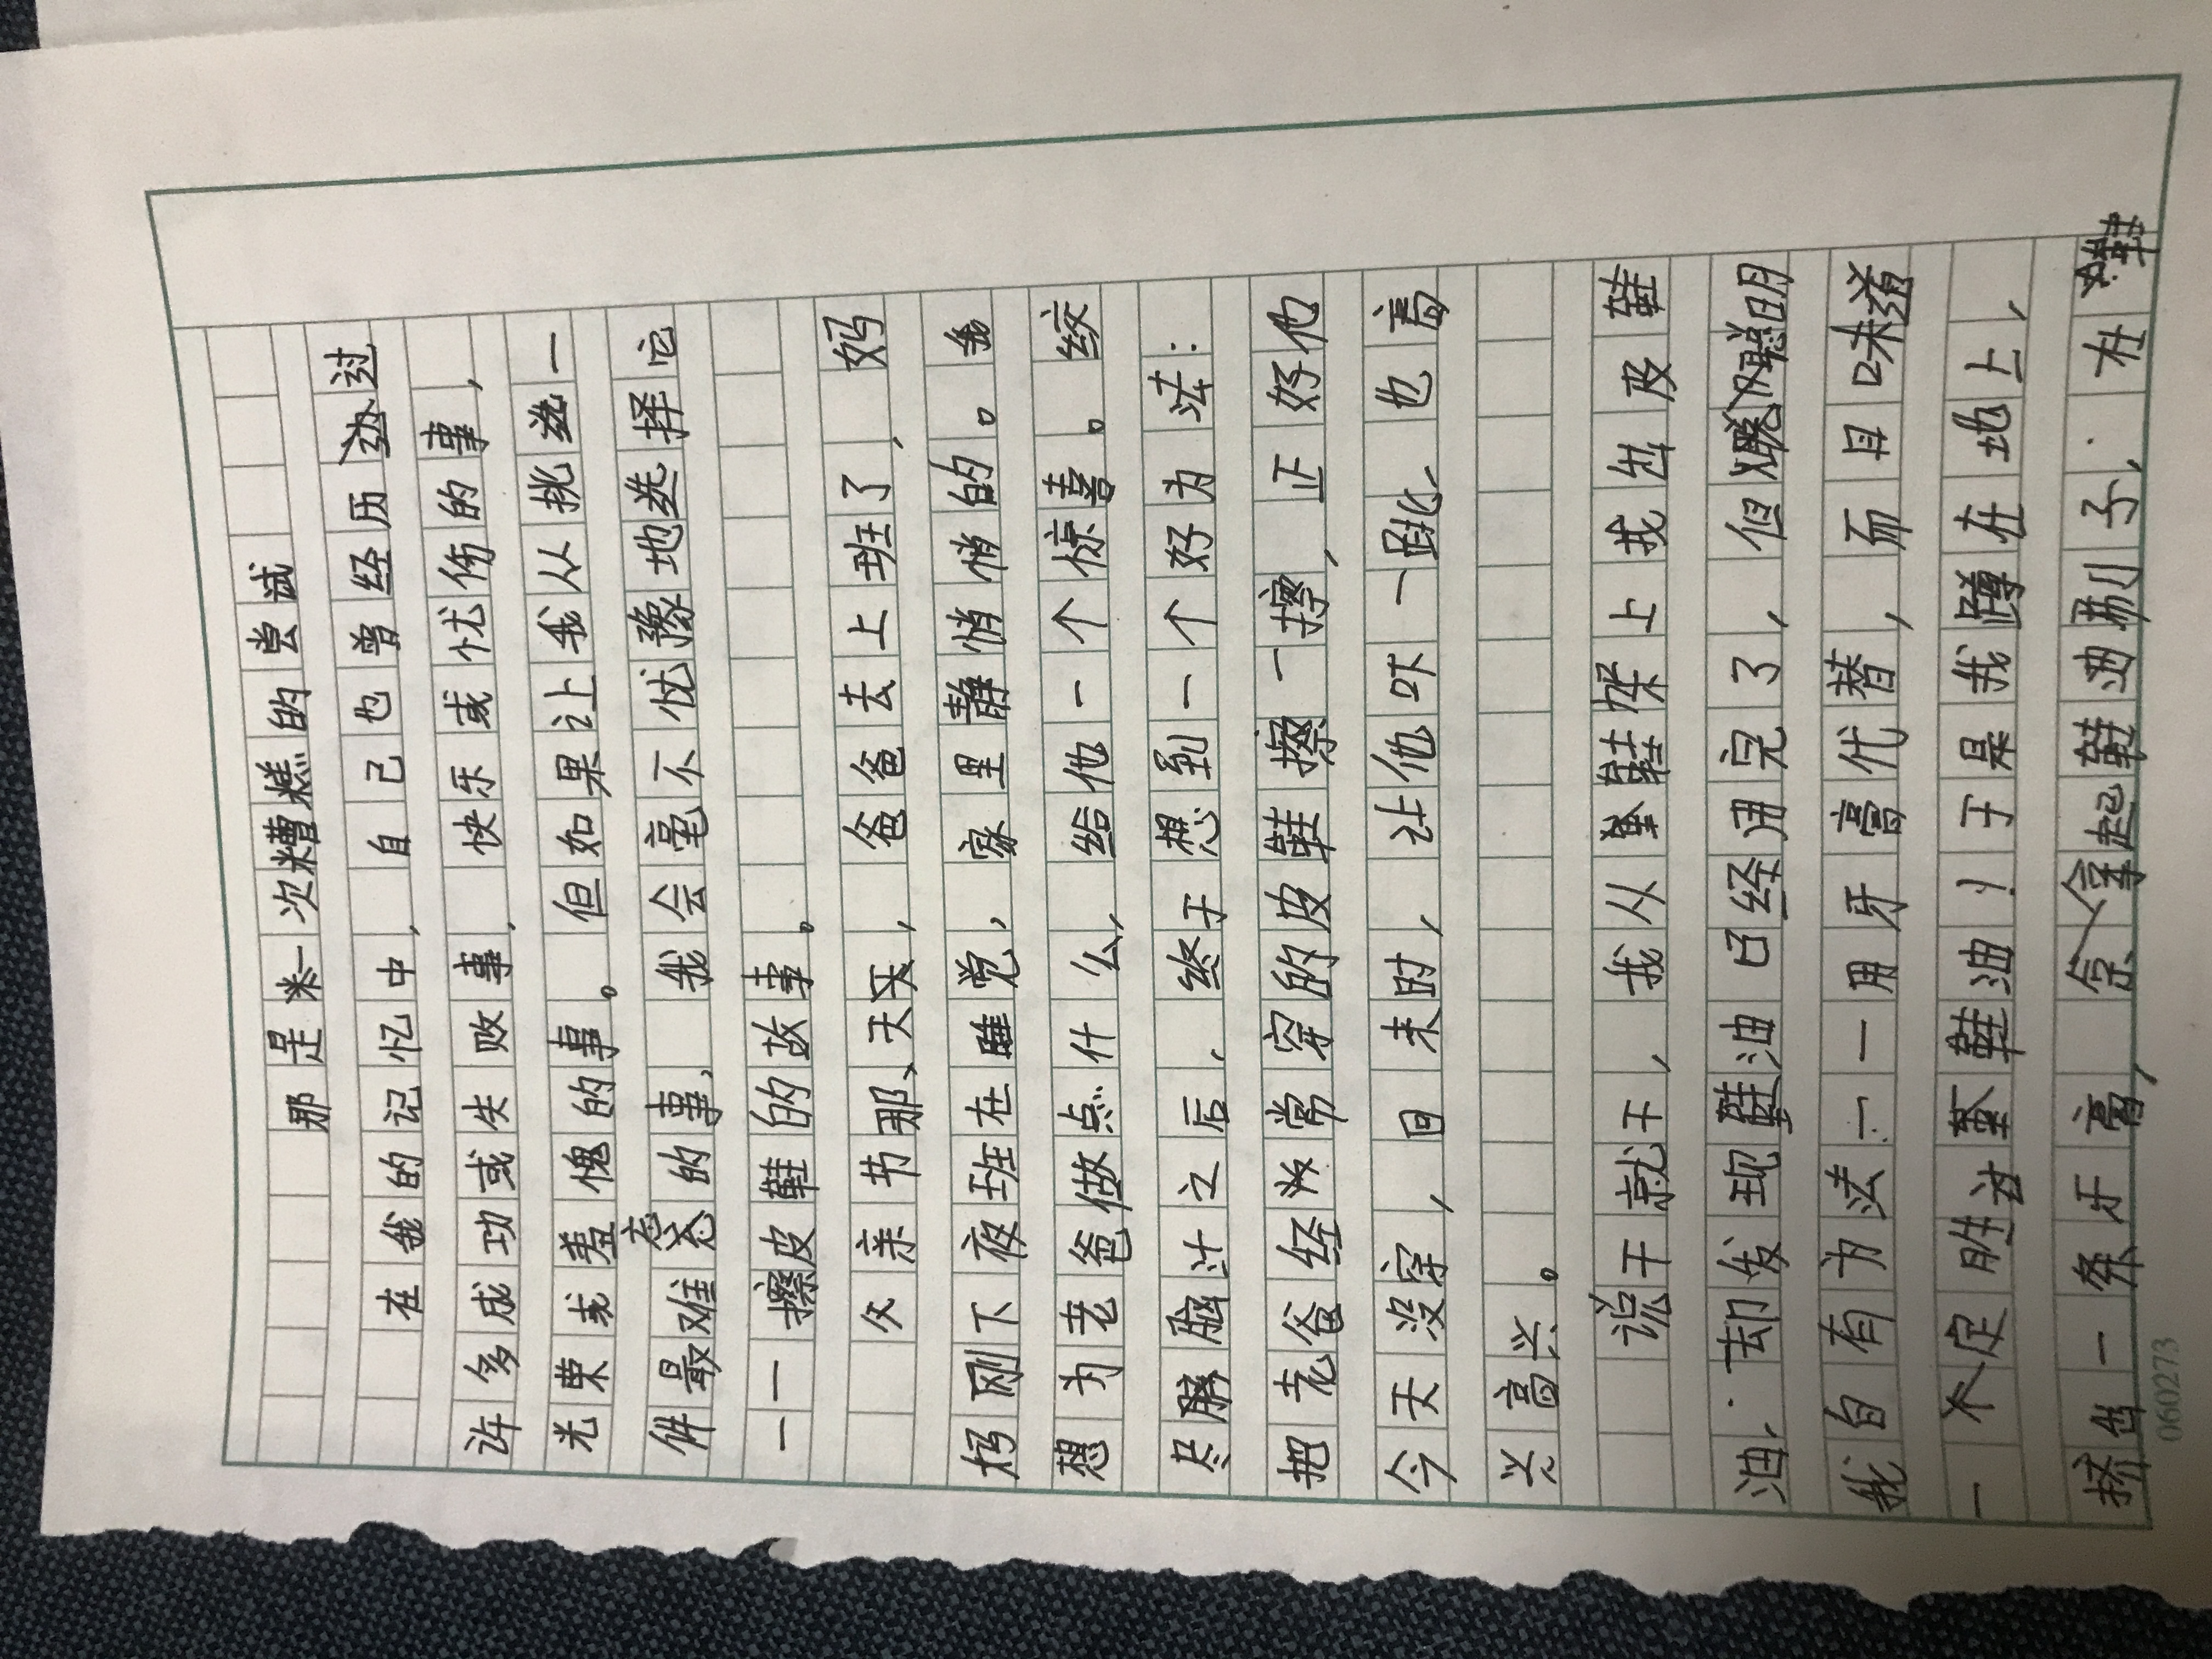 那是一次糟糕的尝试
在我的记忆中，自己也曾经历过
许多成功或失败事，快乐或忧伤的事，
光荣或羞愧的事。但如果让我从挑选一
件最难忘的事，我会毫不忧豫地选择它
——擦皮鞋的故事。
父亲节那、天，爸爸去上班了，妈
妈刚下夜班在睡觉，家里静悄悄的。我
想为老爸做点什么，给他一个惊喜。绞
尽脑汁之后，终于想到一个好办法：
把老爸经常穿的皮鞋擦一擦，正好他
今天没穿，回来时，让他吓一跳、也高
兴高兴。
说干就干，我从鞋架上找出皮鞋
油，却发现鞋油已经用完了，但聪明
我自有办法——用牙膏代替，而且味道
一定胜过鞋油！于是我蹲在地上，
挤出一条牙膏，拿起鞋油刷子，在鞋
060273